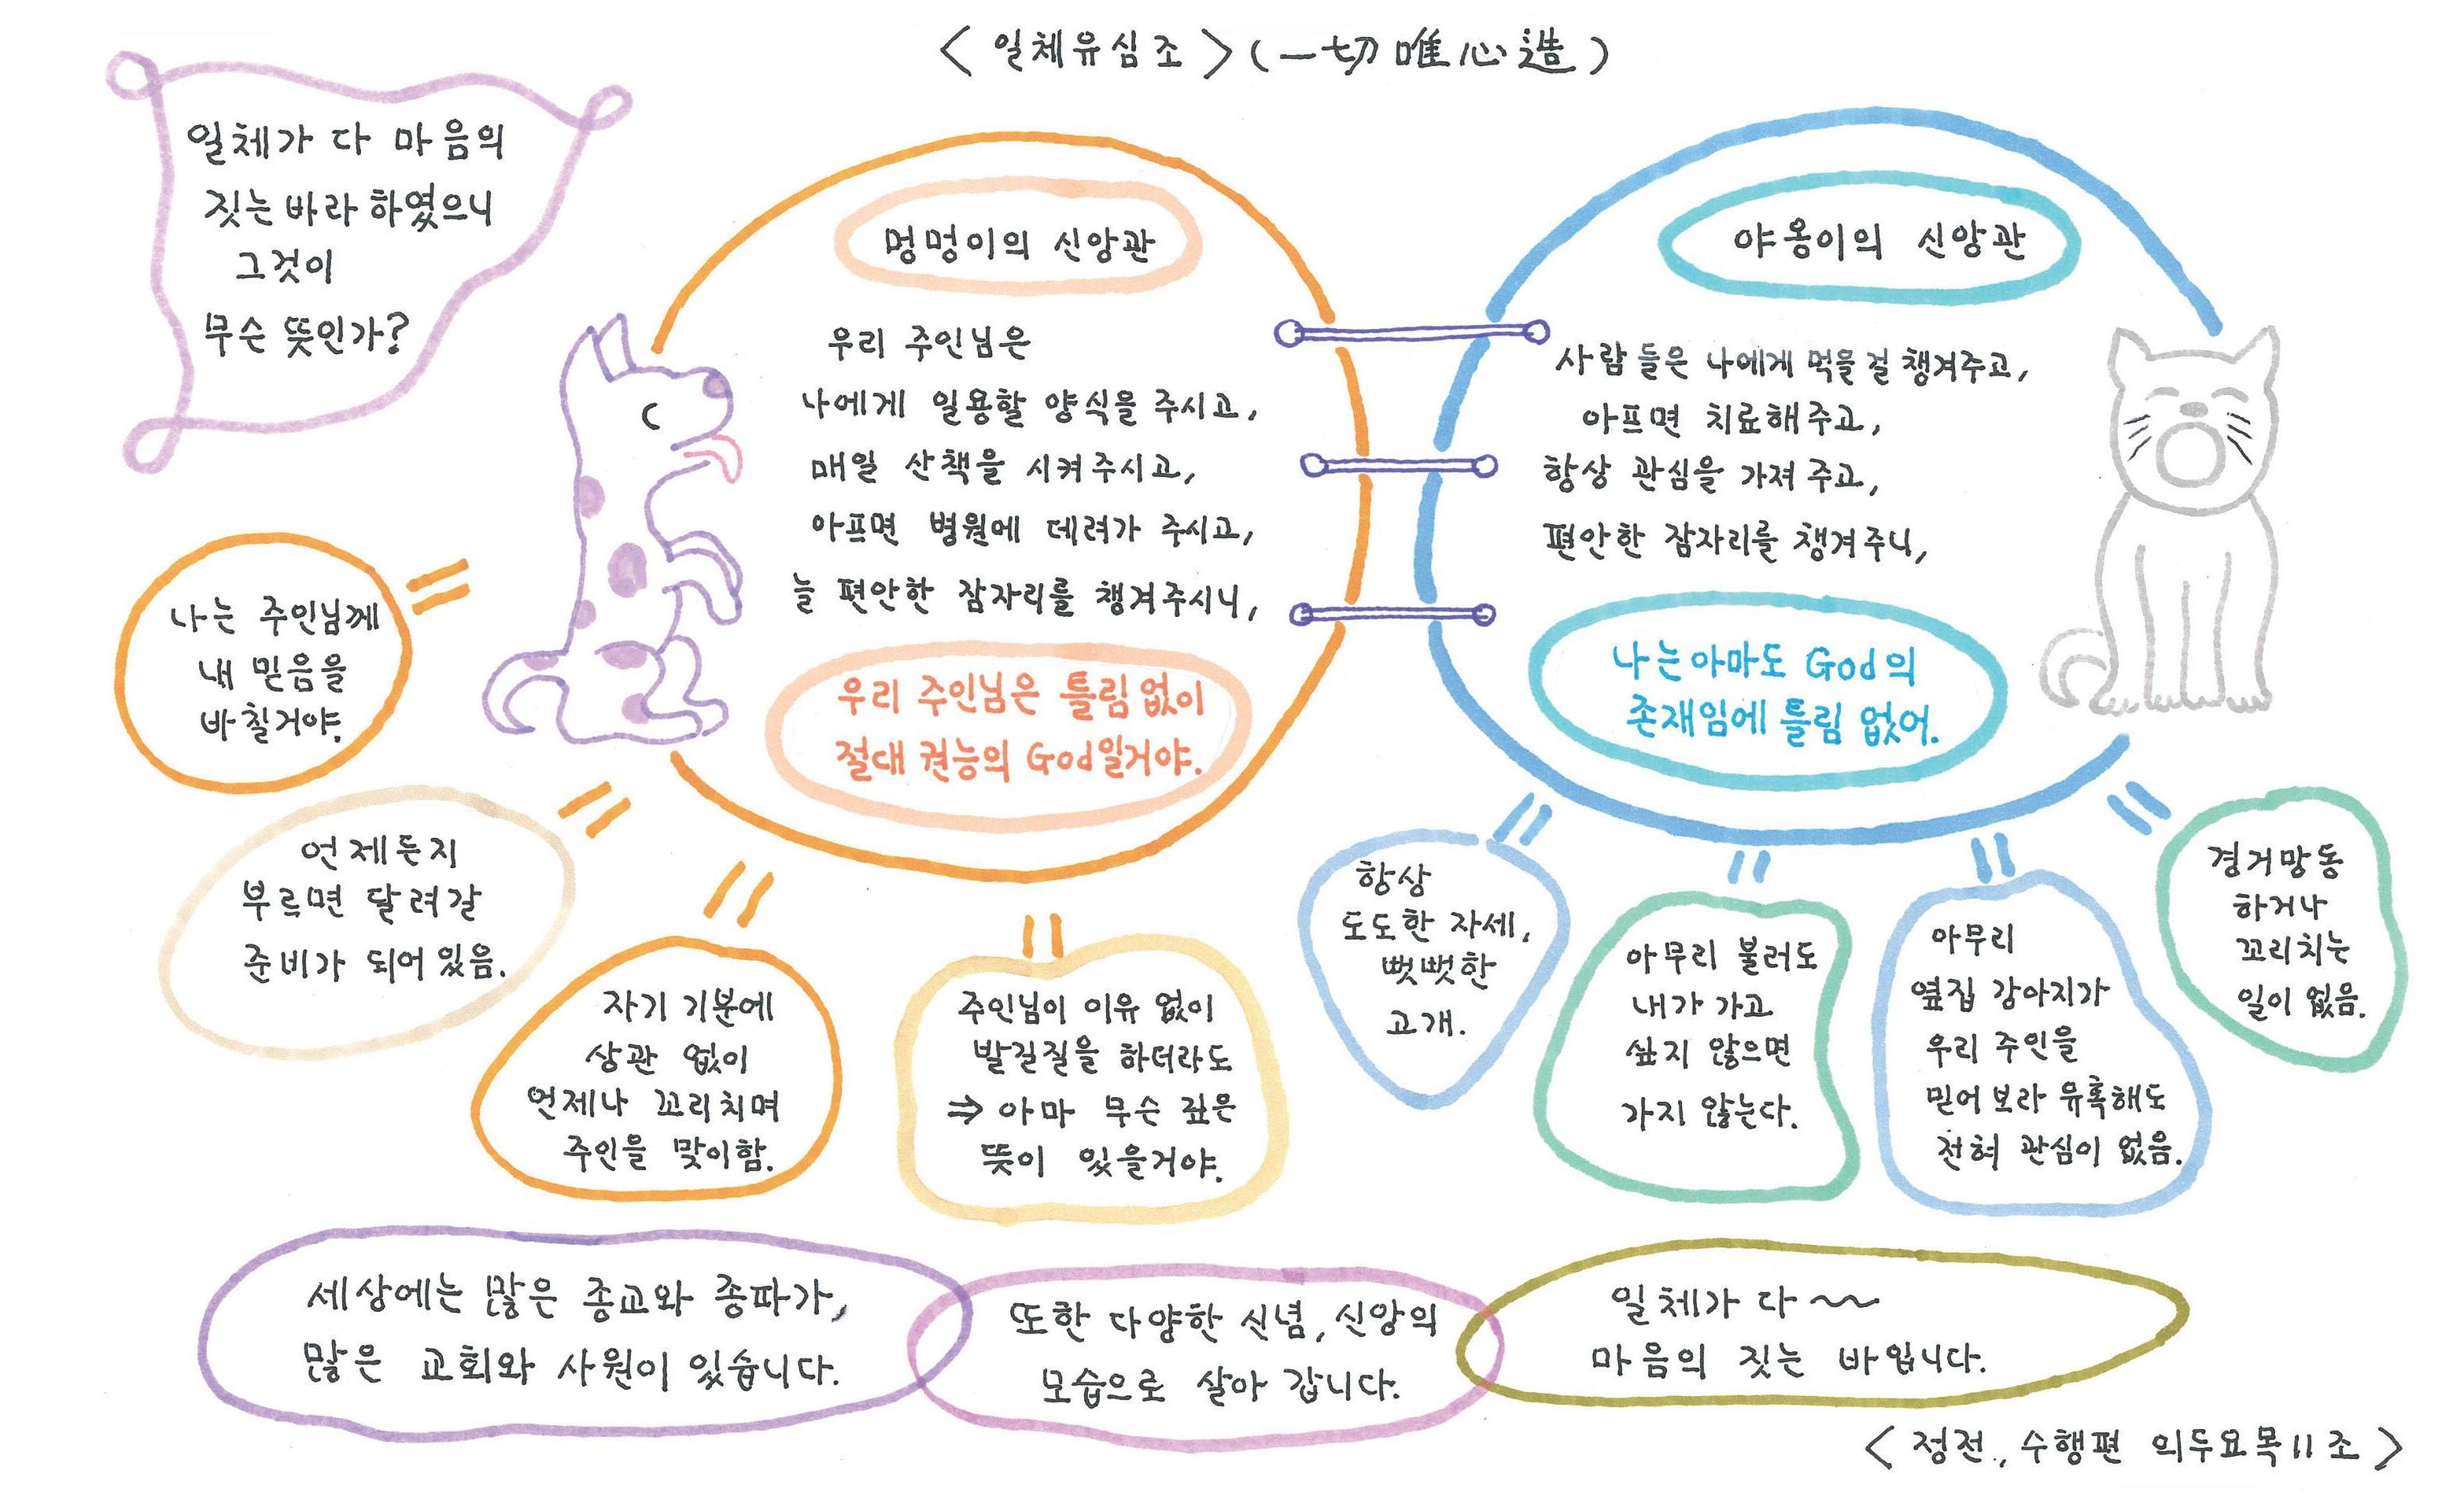 <일체유심조>(一切唯心造)
일체가 다 마음의
짓는 바라 하였으니
그것이
무슨 뜻인가?
멍멍이의 신앙관
우리 주인님은
나에게 일용할 양식을 주시고,
매일 산책을 시켜주시고,
아프면 병원에 데려가 주시고,
늘 편안한 잠자리를 챙겨주시니,
우리 주인님은 틀림없이
절대 권능의 God일거야.
나는 주인님께
내 믿음을
바칠거야.
언제든지
부르면 달려갈
준비가 되어있음.
자기 기분에
상관 없이
언제나 꼬리치며
주인을 맞이함.
주인님이 이유 없이
발길질을 하더라도
⇒ 아마 무슨 깊은
뜻이 있을거야.
야옹이의 신앙관
사람들은 나에게 먹을걸 챙겨주고,
아프면 치료해주고,
항상 관심을 가져주고,
편안한 잠자리를 챙겨주니,
나는아마도 God의
존재임에 틀림 없어.
항상
도도한 자세,
뻣뻣한
고개.
아무리 불러도
내가 가고
싶지 않으면
가지 않는다.
아무리
옆집 강아지가
우리 주인을
믿어보라 유혹해도
전혀 관심이 없음.
경거망동
하거나
꼬리치는
일이 없음.
세상에는 많은 종교와 종파가,
많은 교회와 사원이 있습니다.
또한 다양한 신념, 신앙의
모습으로 살아 갑니다.
일체가 다~~
마음의 짓는 바입니다.
<정전, 수행편 의두요목11조>